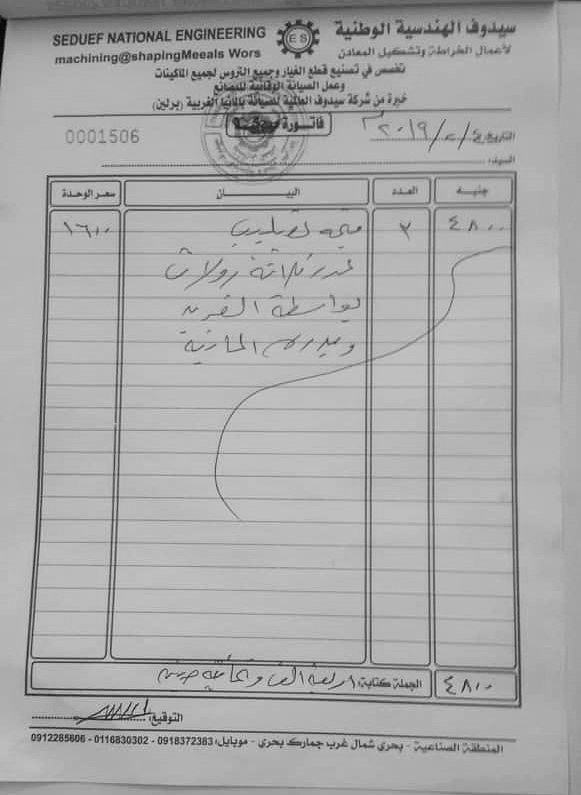 SEDUEF NATIONAL ENGINEERING
machining@shapingMeeals Wors
ES
سيدوف الهندسية الوطنية
لأعمال الخراطة وتشكيل المعادن
تخصص في تصنيع قطع الغيار وجميع التروس لجميع الماكينات
وعمل الصيانة الوقائية للمصانع
خبرة من شركة سيدوف العالمية للصيانة بالمانيا الغربية (برلين)
فاتورة
0001506
التاريخ: ٢٠١٩/٢/٣
السيد:
جنيه العدد البيـــان سعر الوحدة
٤٨٠٠ ٣ قيمة تصليب ١٦٠٠
عدد ثلاثة رولات
بواسطة الفريزة
٤٨٠٠ الجملة كتابة: اربعة الف و ثمانمية جنيه
التوقيع:
المنطقة الصناعية - بحري شمال غرب جمارك بحري - موبايل: 0918372383 - 0116830302 - 0912285606